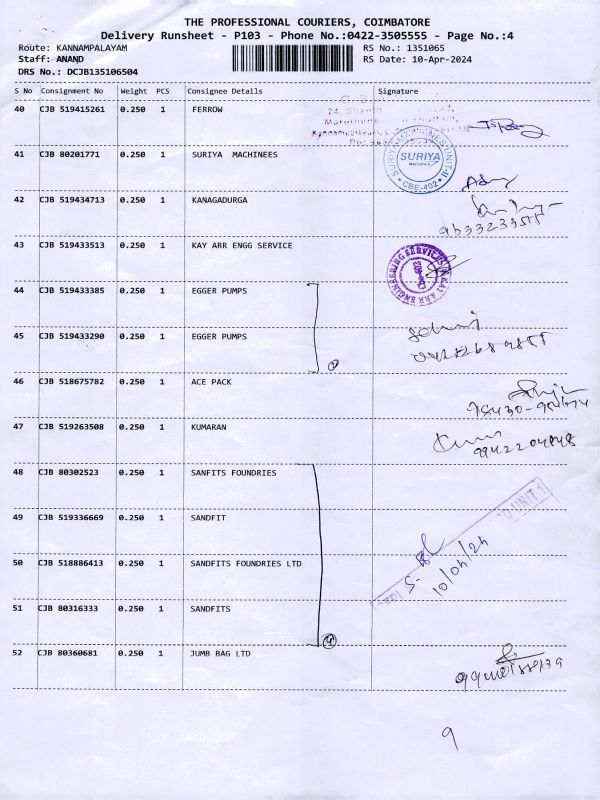 THE PROFESSIONAL COURIERS, COIMBATORE
Delivery Runsheet - P103 - Phone No.:0422-3505555 - Page No.:4
Route: KANNAMPALAYAM RS No.: 1351065
Staff: ANAND RS Date: 10-Apr-2024
DRS No.: DCJB135106504
S No Consignment No Weight PCS Consignee Details Signature
40 CJB 519415261 0.250 1 FERROW
41 CJB 80201771 0.250 1 SURIYA MACHINEES
SURIYA
CBE-402
42 CJB 519434713 0.250 1 KANAGADURGA
43 CJB 519433513 0.250 1 KAY ARR ENGG SERVICE
44 CJB 519433385 0.250 1 EGGER PUMPS
45 CJB 519433290 0.250 1 EGGER PUMPS
46 CJB 518675782 0.250 1 ACE PACK
47 CJB 519263508 0.250 1 KUMARAN
9942204848
48 CJB 80302523 0.250 1 SANFITS FOUNDRIES
49 CJB 519336669 0.250 1 SANDFIT
UNIT 1
50 CJB 518886413 0.250 1 SANDFITS FOUNDRIES LTD
10/04/24
51 CJB 80316333 0.250 1 SANDFITS
4
52 CJB 80360681 0.250 1 JUMB BAG LTD
9